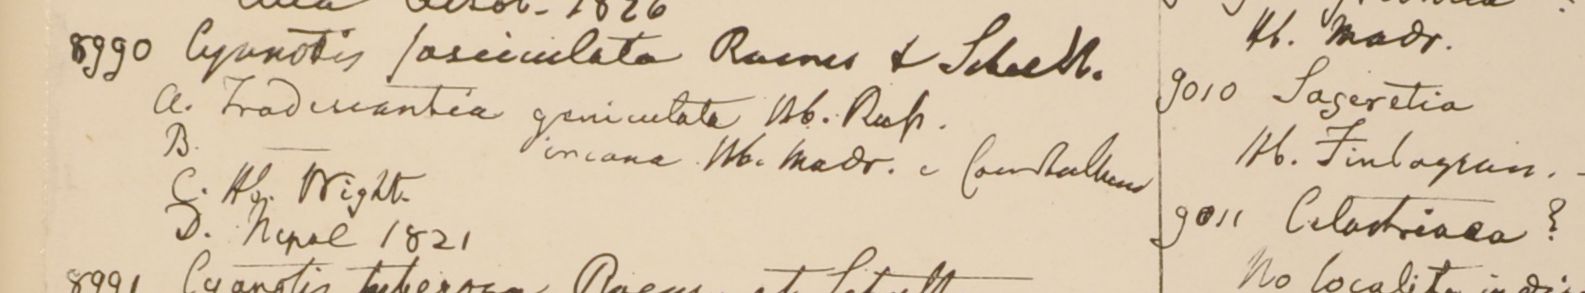 1826
8990 Cyanotis fasciculata Roemer & Schult.
a. Tradescantia geniculata Hb. Russ.
B. — incana Hb. Madr. e Coimbatore
C. Hb. Wight.
D. Nepal 1821
8991 Cyanotis tuberosa Roem. et Schult
Hb. Madr.
9010 Sageretia
Hb. Finlayson. -
9011 Celastriacea ?
No locality in